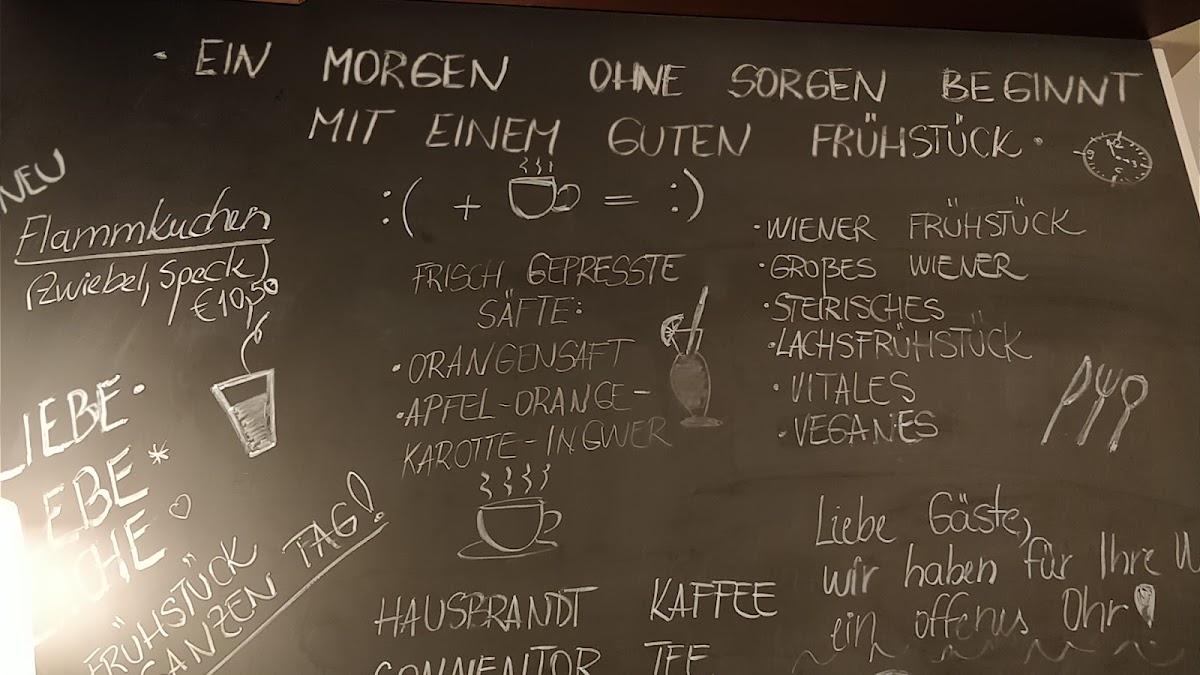 · EIN MORGEN OHNE SORGEN BEGINNT
MIT EINEM GUTEN FRÜHSTÜCK ·
:( + = :)
NEU
Flammkuchen
(Zwiebel, Speck)
€10,50
LIEBE ·
FRÜHSTÜCK
GANZEN TAG!
FRISCH GEPRESSTE
SÄFTE:
· ORANGENSAFT
· APFEL-ORANGE-
KAROTTE-INGWER
HAUSBRANDT KAFFEE
SONNENTOR TEE
· WIENER FRÜHSTÜCK
· GROßES WIENER
· STEIRISCHES
· LACHSFRÜHSTÜCK
· VITALES
· VEGANES
Liebe Gäste,
wir haben für Ihre
ein offenes Ohr